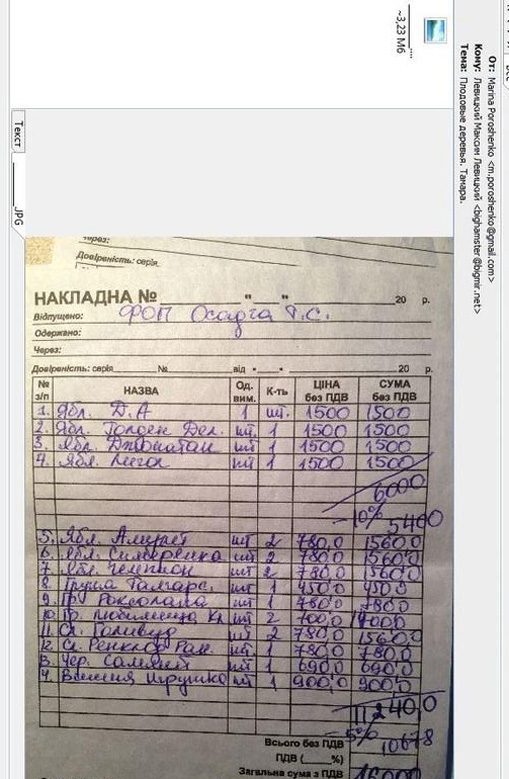 От: Marina Poroshenko <m.poroshenko@gmail.com>
Кому: Левицкий Максим Левицкий <bighamster@bigmir.net>
Тема: Плодовые деревья. Тамара.
~3,23 Мб
Текст .JPG
Через:
Довіреність: серія
НАКЛАДНА № " " 20 р.
Відпущено: ФОП Осадча Т.С.
Одержано:
Через:
Довіреність: серія № від " " 20 р.
№ з/п НАЗВА Од. вим. К-ть ЦІНА без ПДВ СУМА без ПДВ
1. Ябл. Д.А 1 шт. 1500 1500
2. Ябл. Голден Дел. шт 1 1500 1500
3. Ябл. Джонатан шт 1 1500 1500
4. Ябл. Лигол шт 1 1500 1500
6000
-10% 5400
5. Ябл. шт 2 780,0 1560,0
6. Ябл. Симиренко шт 2 780,0 1560,0
7. Ябл. Чемпион шт 2 780,0 1560,0
8. Груша Талгарс. шт 1 450,0 450,0
9. Гр. Роксолана шт 1 780,0 780,0
10. Гр. Любимица Кл. шт 2 700,0 1400,0
11. Сл. Голивуд шт 2 780,0 1560,0
12. Сл. Ренклод шт 1 780,0 780,0
13. Чер. шт 1 690,0 690,0
14. Вишня Игрушка шт 1 900,0 900,0
11240,0
-5% 10678
Всього без ПДВ
ПДВ ( %)
Загальна сума з ПДВ